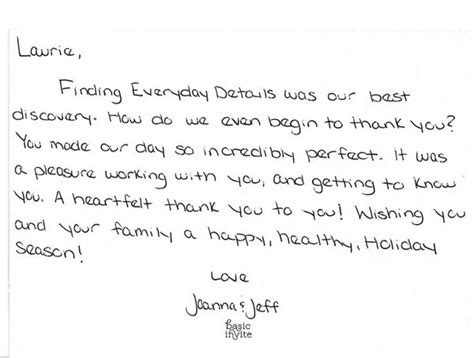 Laurie,
Finding Everyday Details was our best
discovery. How do we even begin to thank you?
You made our day so incredibly perfect. It was
a pleasure working with you, and getting to know
you. A heartfelt thank you to you! Wishing you
and your family a happy, healthy, Holiday
Season!
Love
Joanna & Jeff
basic
invite